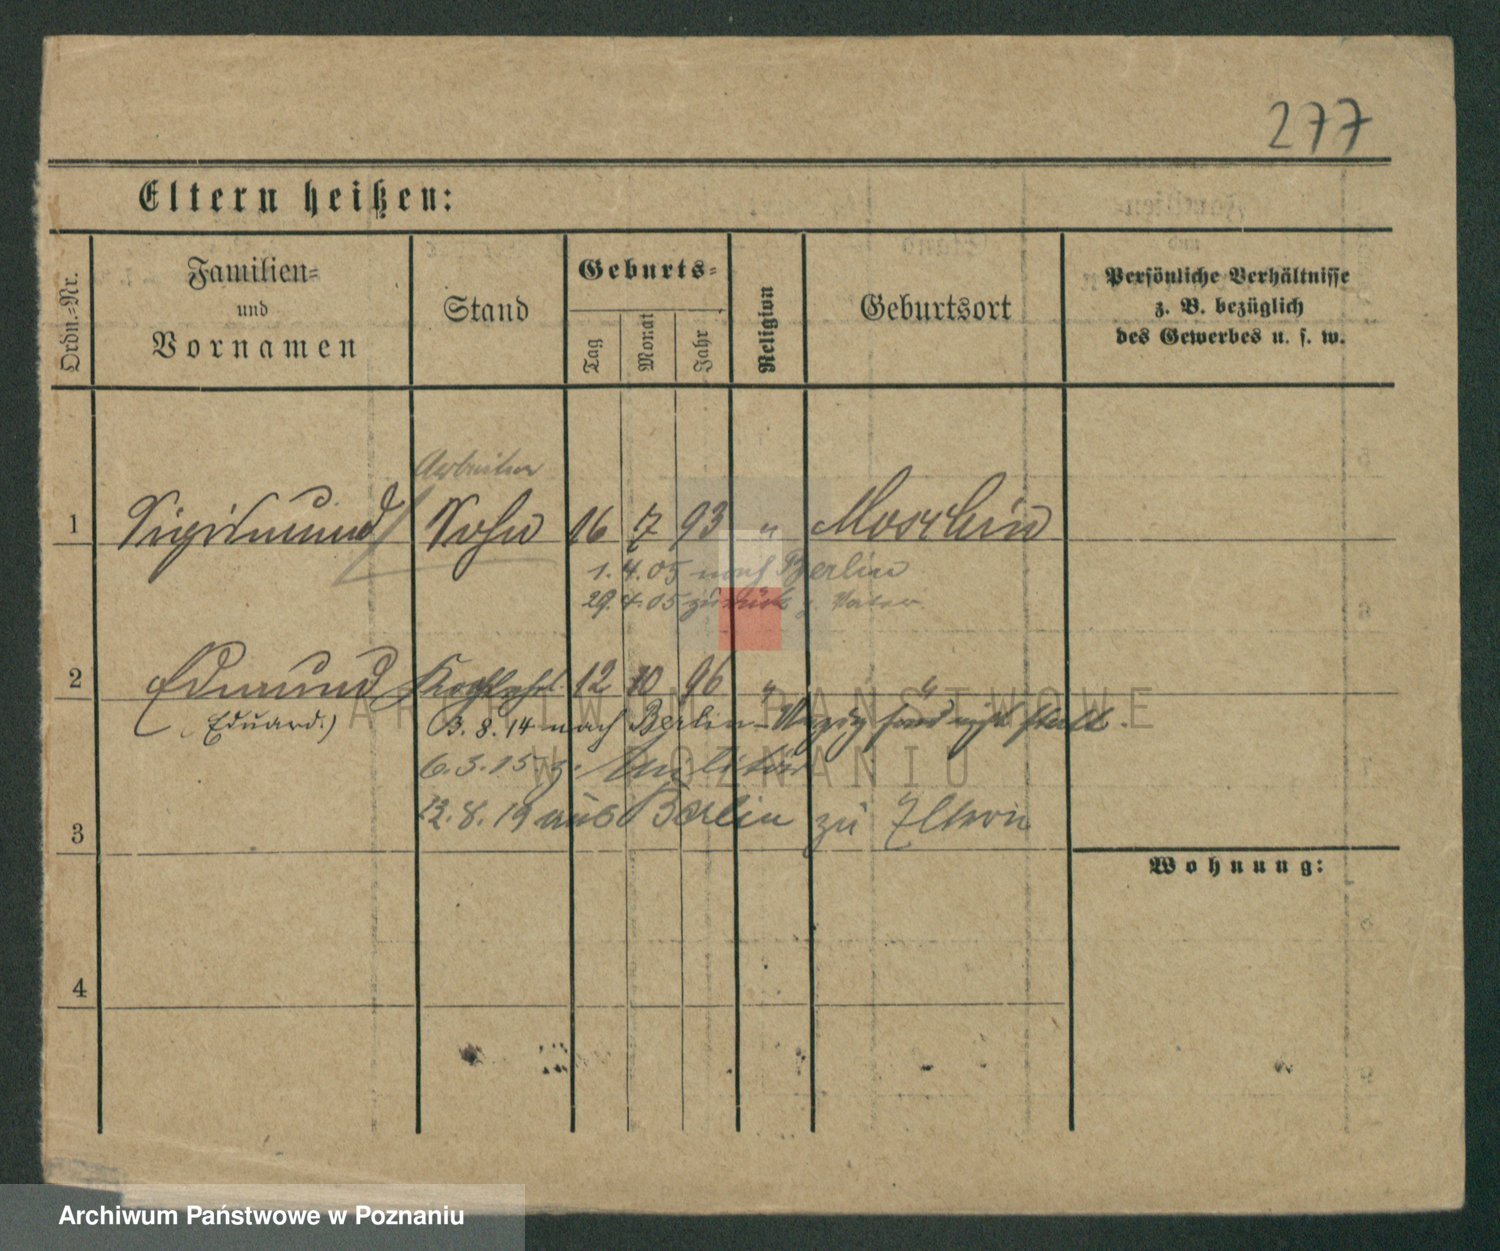 277
Eltern heißen:
Ordn.-Nr.
Familien-
und
Vornamen
Stand
Geburts-
Tag
Monat
Jahr
Religion
Geburtsort
Persönliche Verhältnisse
z. B. bezüglich
des Gewerbes u. s. w.
Arbeiter
1 Sigismund Sohn 16 7 93 " Moschin
1. 4. 05 nach Berlin
29. 4. 05 zurück z. Vater
2 Edmund 12 10 96 " "
(Eduard.) 3. 8. 14 nach Berlin - nicht statt.
6. 5. 15 z. Militär
12. 8. 19 aus Berlin zu Eltern
3
Wohnung:
4
ARCHIWUM PAŃSTWOWE
W POZNANIU
Archiwum Państwowe w Poznaniu